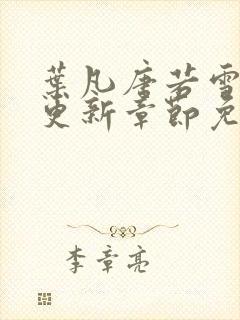 葉凡唐若雪
更新章節免
李章亮